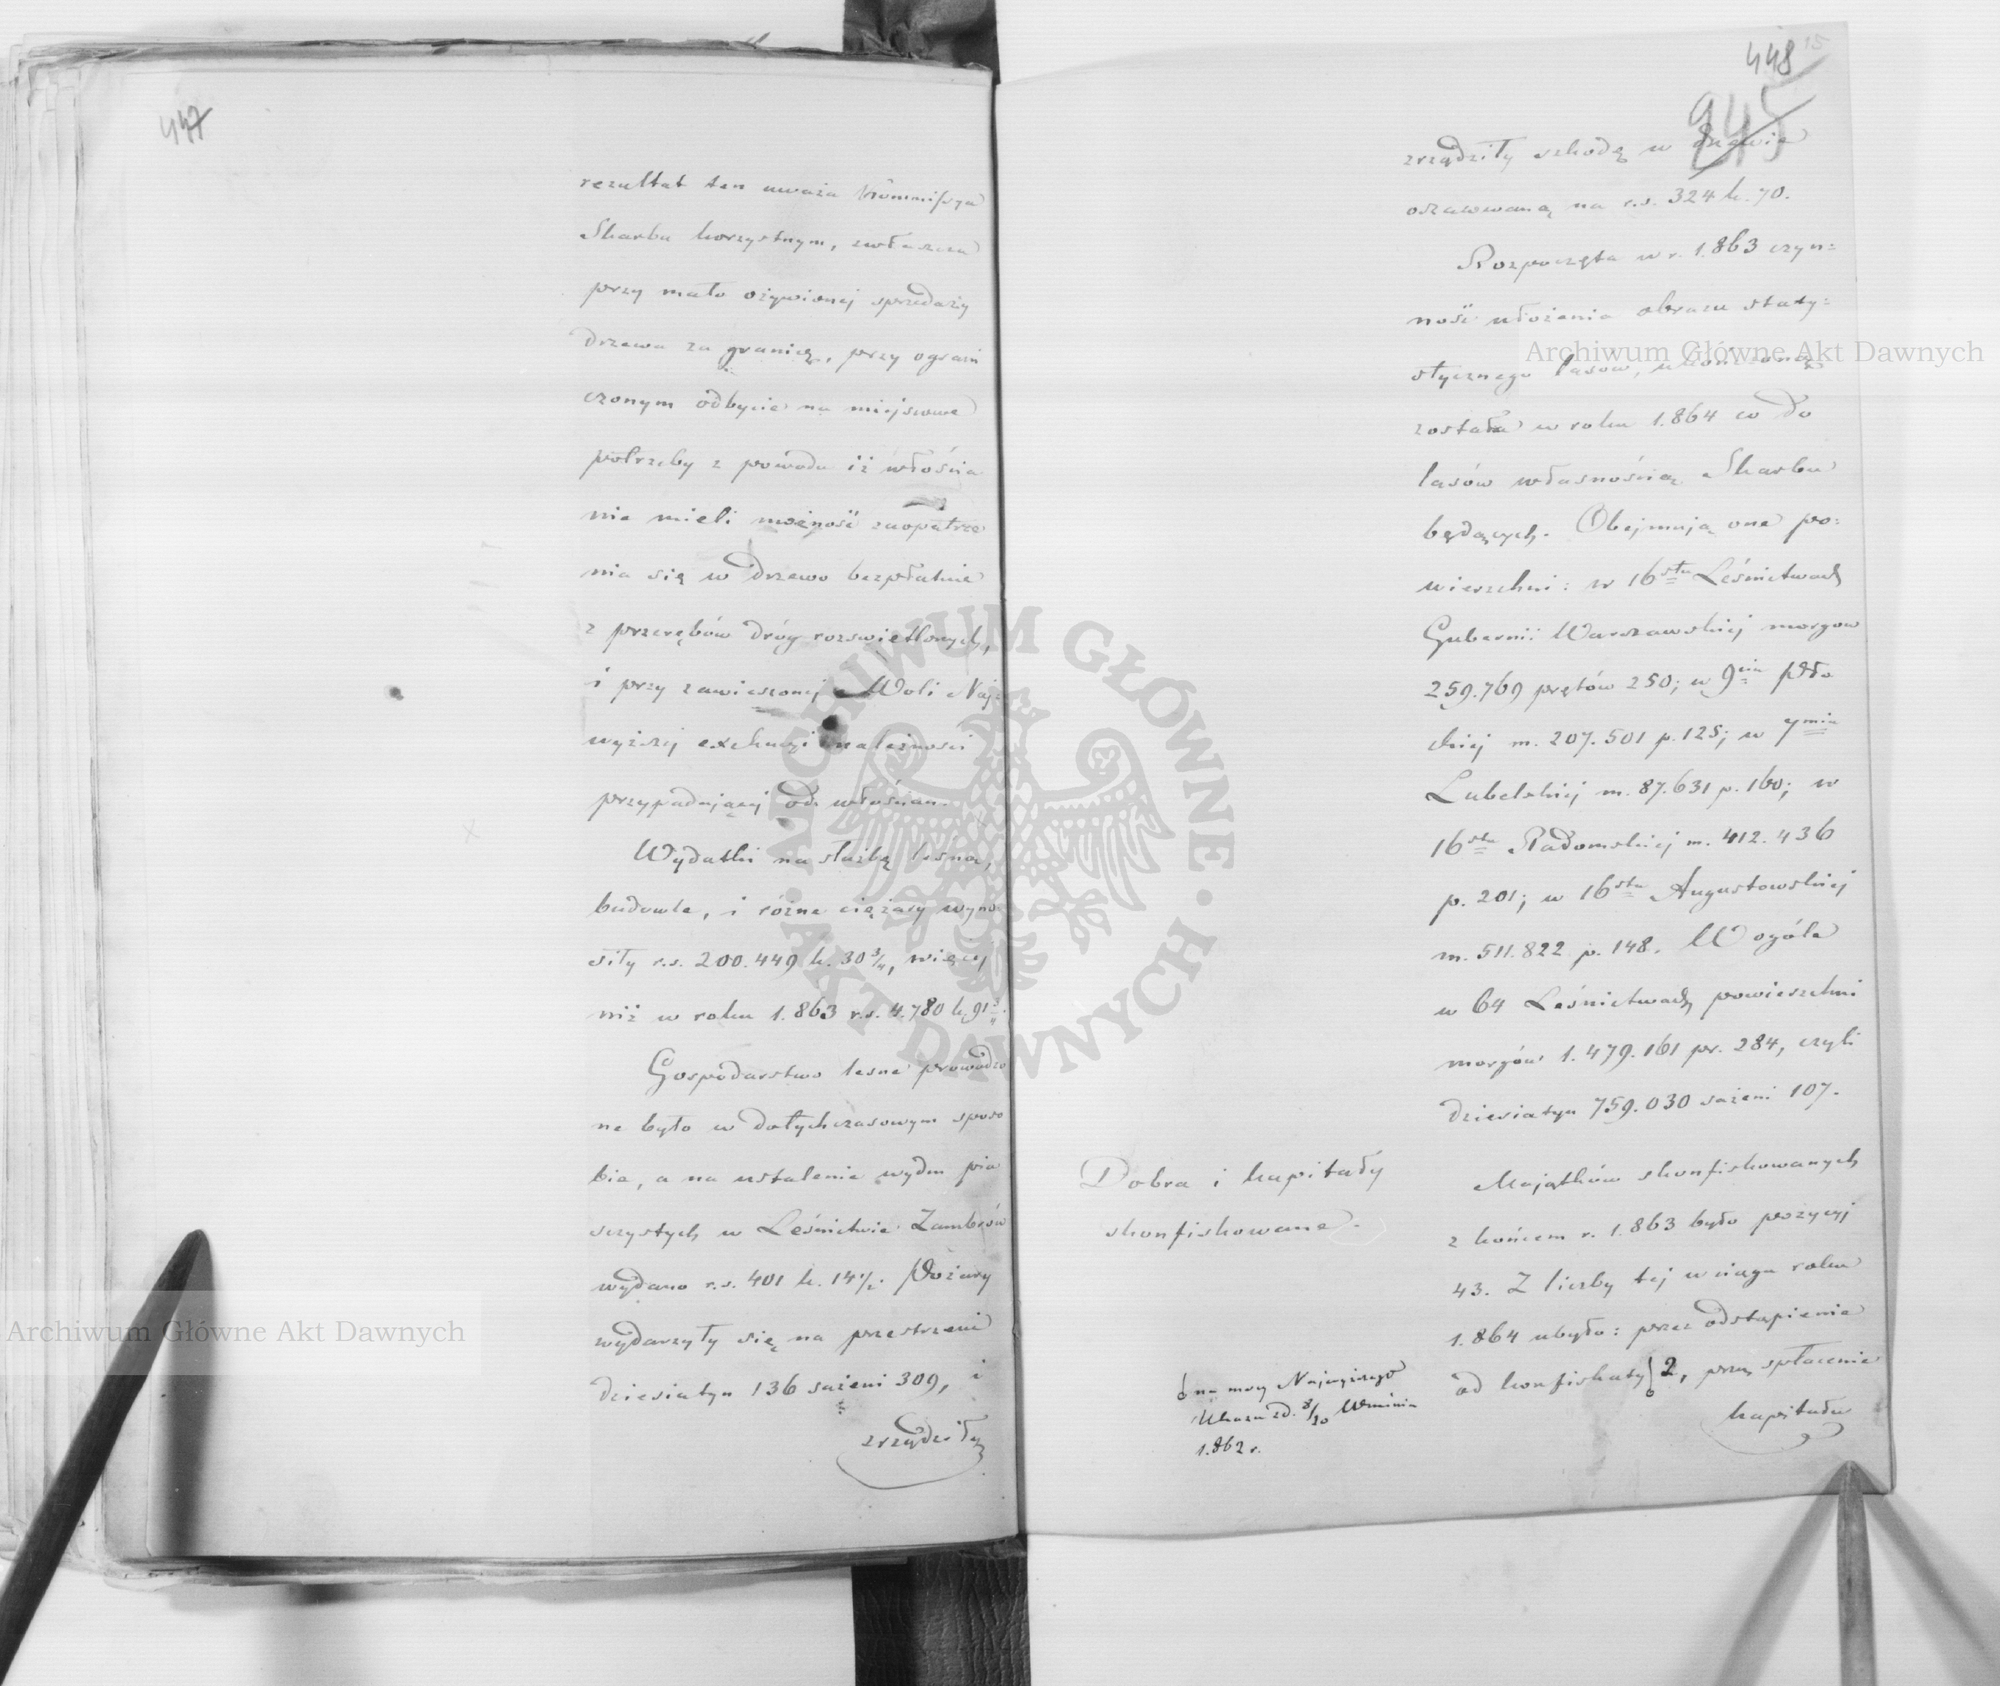 447
rezultat ten uważa Kommissya
Skarbu korzystnym, zwłaszcza
przy mało ożywionej sprzedaży
drzewa za granicę, przy ograni
czonym odbycie na miejscowe
potrzeby z powodu iż włościa
nie mieli możność zaopatrze
nia się w drzewo bezpłatnie
z przerębów dróg rozświetlonych,
i przy zawieszonej z Woli Naj=
wyższej exekucyi należności
przypadającej od włościan.
Wydatki na służbę lesną,
budowle, i różne ciężary wyno
siły r.s. 200.449 k. 30 3/4, więcej
niż w roku 1.863 r.s. 4.780 k. 91
Gospodarstwo lesne prowadzo
ne było w dotychczasowym sposo
bie, a na ustalenie wydm pia
szczystych w Leśnictwie Zambrów
wydano r.s. 401 k. 14 1/2. Pożary
wydarzyły się na przestrzeni
dziesiatyn 136 sażeni 309, i
zrządziły
448 15
945
zrządziły szkodę w drzewie
oszacowaną na r.s. 324 k. 70.
Rozpoczęta w r. 1.863 czyn=
ność ułożenia obrazu staty=
stycznego lasów, ukończoną
została w roku 1.864 co do
lasów własnością Skarbu
będących. Obejmują one po=
wierzchni: w 16stu Leśnictwach
Gubernii Warszawskiej morgow
259.769 prętów 250; w 9ciu Pło
ckiej m. 207.501 p. 125; w 7miu
Lubelskiej m. 87.631 p. 160; w
16stu Radomskiej m. 412.436
p. 201; w 16stu Augustowskiej
m. 511.822 p. 148. W ogóle
w 64 Leśnictwach powierzchni
morgów 1.479.161 pr. 284, czyli
dziesiatyn 759.030 sażeni 107.
Dobra i kapitały
skonfiskowane.
Majątków skonfiskowanych
z końcem r. 1.863 było pozycyj
43. Z liczby tej w ciągu roku
1.864 ubyło: przez odstąpienie
od konfiskaty 2, przez spłacenie
kapitału
na mocy Najwyższego
Ukazu z d. 8/20 Września
1.862 r.
Archiwum Główne Akt Dawnych
Archiwum Główne Akt Dawnych
ARCHIWUM GŁÓWNE · AKT DAWNYCH ·